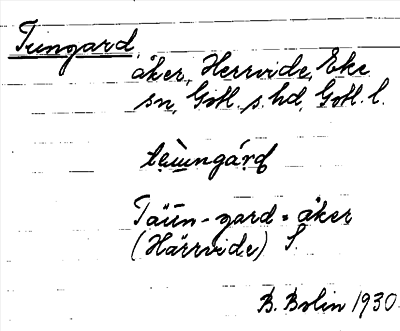 Tungard,
åker, Herrvide, Eke
sn, Gotl. s. hd, Gotl. l.
tèu̯ngárd
Täün-gard = åker
(Härrvide) S.
B. Bolin 1930.